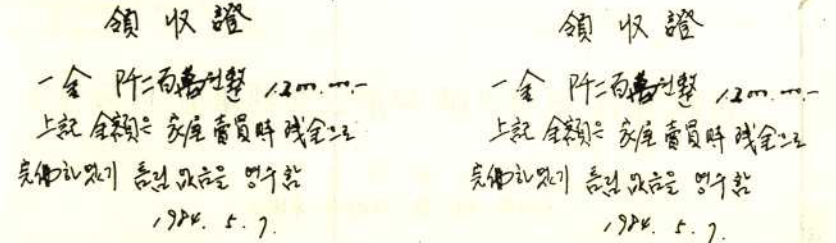 領収證
一金 阡二百萬원整 12,000,000.-
上記 金額은 家屋 賣買時 残金으로
完備되었기 틀림 없음을 영수함
1984. 5. 7.
領収證
一金 阡二百萬원整 12,000,000.-
上記 金額은 家屋 賣買時 残金으로
完備되었기 틀림 없음을 영수함
1984. 5. 7.